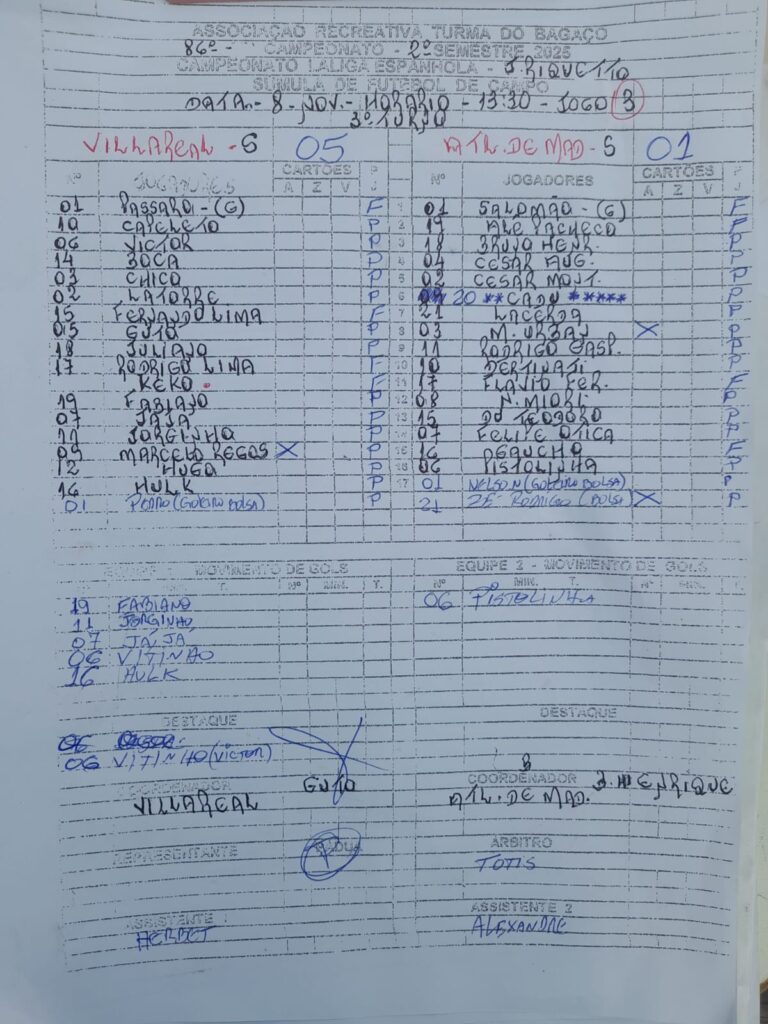 ASSOCIAÇAO RECREATIVA TURMA DO BAGAÇO
86º- CAMPEONATO - 2º SEMESTRE 2025
CAMPEONATO LALIGA ESPANHOLA - J.RIQUETTO
SÚMULA DE FUTEBOL DE CAMPO
DATA - 8 - NOV. - HORARIO - 13:30 - JOGO 3
3º TURNO
VILLAREAL - S 05 ATL. DE MAD - S 01
Nº JOGADORES CARTÕES A Z V P J Nº JOGADORES CARTÕES A Z V P J
01 PASSARO - (G) F 1 01 SALOMÃO - (G) F
10 CAPELETO P 2 19 ALE PACHECO F
06 VICTOR P 3 18 BRUNO HENR. P
14 BOCA P 4 04 CESAR AUG. P
03 CHICO P 5 02 CESAR MONT. P
02 LATORRE P 6 20 **CADU ***** P
15 FERNANDO LIMA F 7 21 LACERDA P
05 GUTO P 8 03 M. URBAN X P
18 JULIANO P 9 11 RODRIGO GASP. P
17 RODRIGO LIMA F 10 10 DERTINATI P
KEKO F 11 17 FLAVIO FER. F
19 FABIANO P 12 08 N. MIORI P
07 JAJA P 13 15 DU TEODORO P
11 JORGINHO P 14 07 FELIPE OTICA P
09 MARCELO REGOS X P 15 16 DEAUCHO F
12 HUGO P 16 06 PISTOLINHA P
16 HULK P 17 01 NELSON (GOLEIRO BOLSA) P
01 PEDRO (GOLEIRO BOLSA) P 21 ZÉ RODRIGO (BOLSA) X P
MOVIMENTO DE GOLS EQUIPE 2 - MOVIMENTO DE GOLS
Nº MIN. T. Nº MIN. T.
19 FABIANO 06 PISTOLINHA
11 JORGINHO
07 JAJÁ
06 VITINHO
16 HULK
DESTAQUE DESTAQUE
06 VITINHO (VICTOR)
COORDENADOR GUTO COORDENADOR J. HENRIQUE
VILLAREAL ATL. DE MAD.
REPRESENTANTE PADUA ARBITRO
TOTIS
ASSISTENTE 1 ASSISTENTE 2
HERBET ALEXANDRE